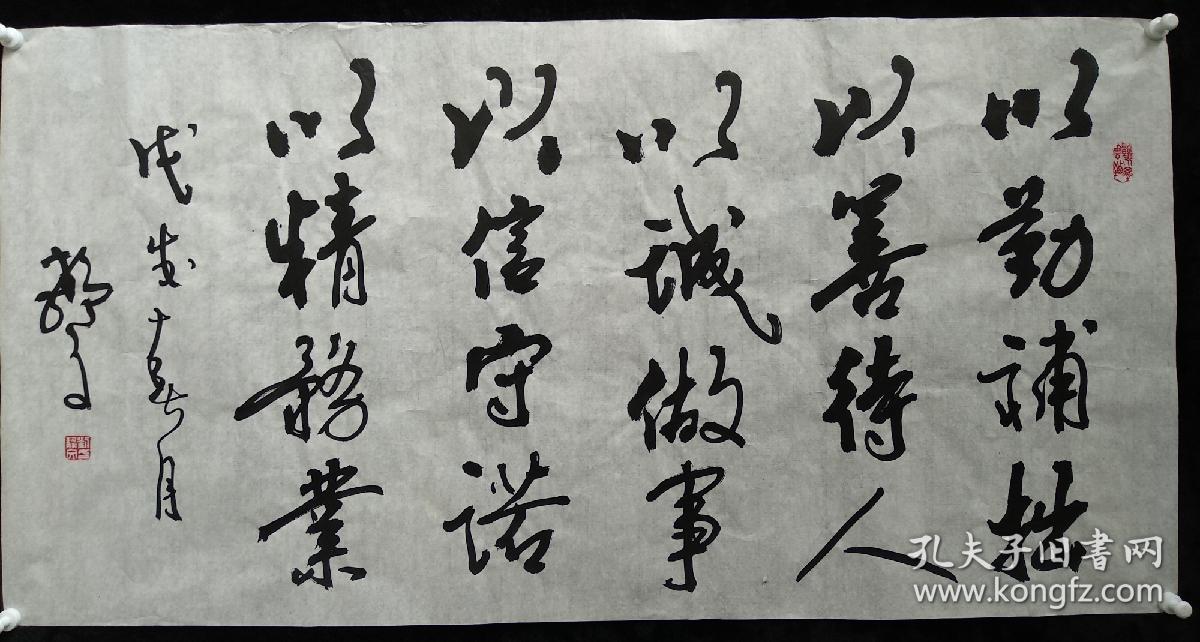 以勤補拙
以善待人
以誠做事
以信守諾
以精務業
戊戌十
月
孔夫子旧書网
www.kongfz.com